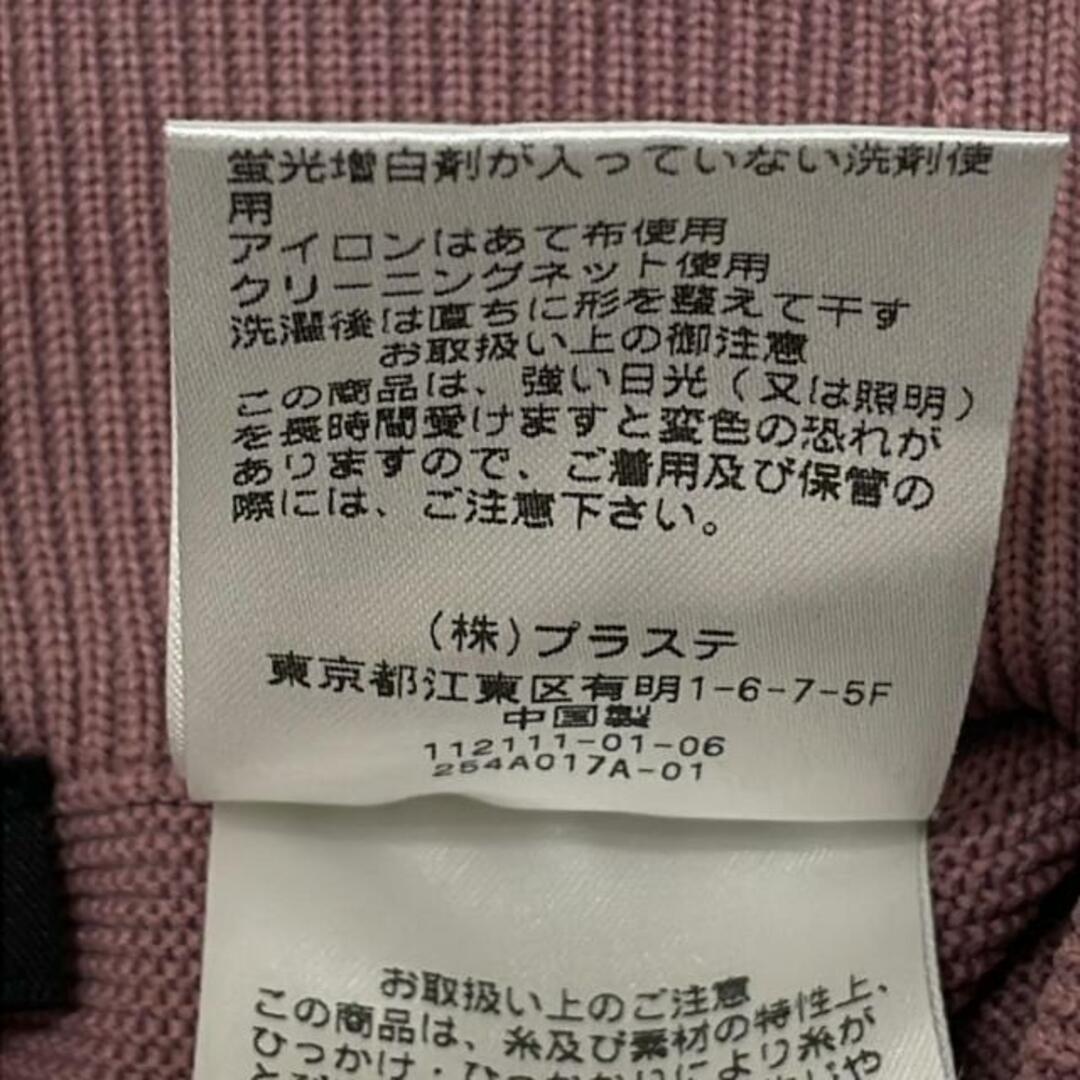 蛍光増白剤が入っていない洗剤使
用
アイロンはあて布使用
クリーニングネット使用
洗濯後は直ちに形を整えて干す
お取扱い上の御注意
この商品は、強い日光(又は照明)
を長時間受けますと変色の恐れが
ありますので、ご着用及び保管の
際には、ご注意下さい。
(株)プラステ
東京都江東区有明1-6-7-5F
中国製
112111-01-06
254A017A-01
お取扱い上のご注意
この商品は、糸及び素材の特性上、
ひっかけ・ひっかかりにより糸が